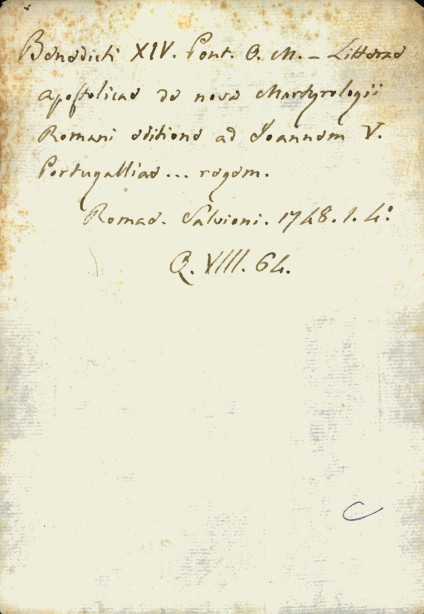 Benedicti XIV. Pont. O. M. – Litterae
apostolicae de nova Martyrologii
Romani editione ad Joannem V.
Portugalliae... regem.
Romae. Salvioni. 1748. 1. 4º
Q. VIII. 64.
C